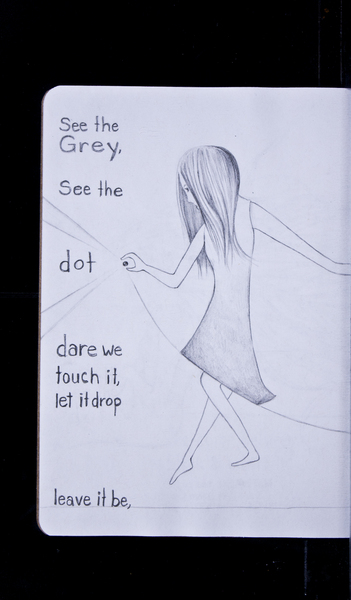 See the
Grey,
See the
dot
dare we
touch it,
let it drop
leave it be,